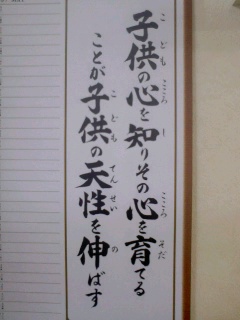 子供の心を知りその心を育てる
ことが子供の天性を伸ばす